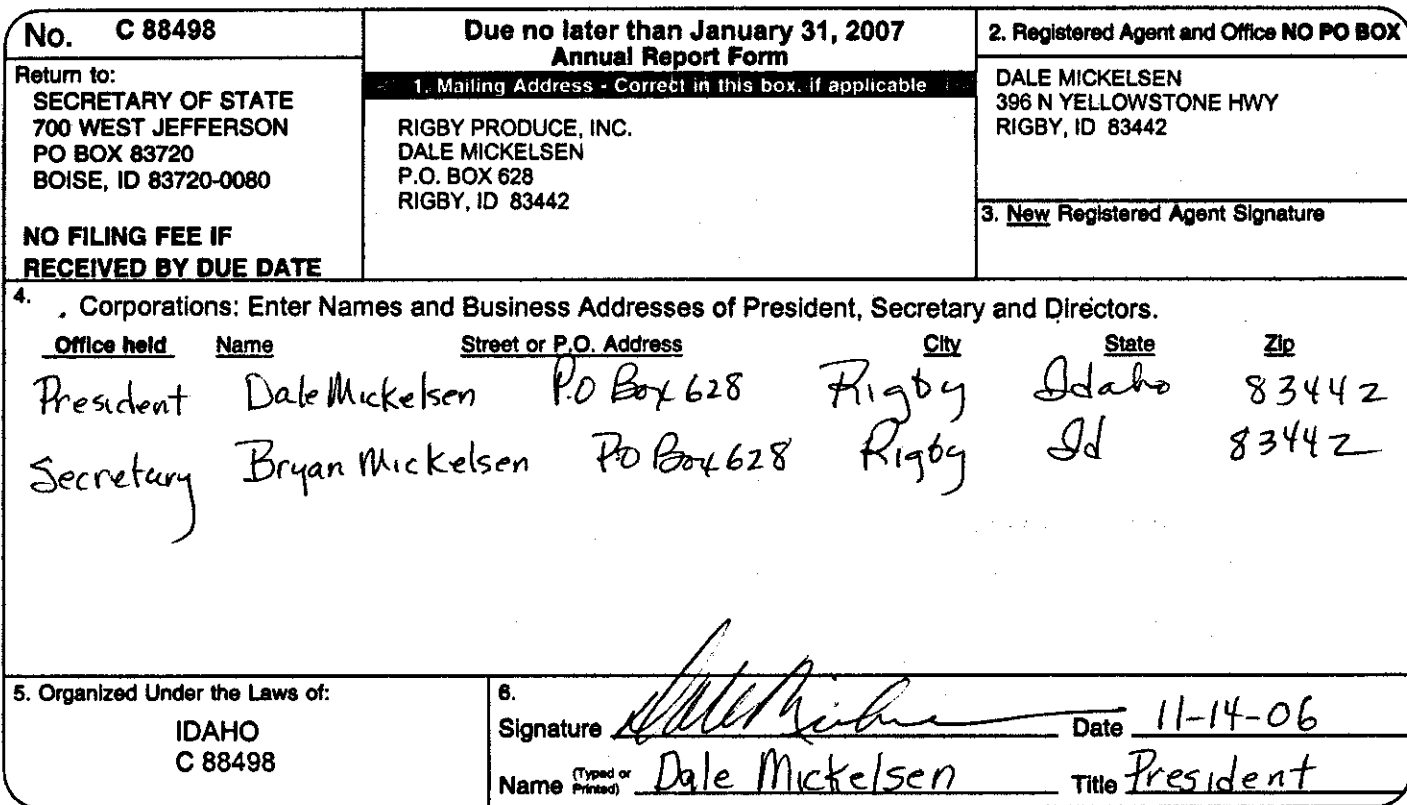 No. C 88498
Return to:
SECRETARY OF STATE
700 WEST JEFFERSON
PO BOX 83720
BOISE, ID 83720-0080
NO FILING FEE IF
RECEIVED BY DUE DATE
Due no later than January 31, 2007
Annual Report Form
1. Mailing Address - Correct in this box, if applicable
RIGBY PRODUCE, INC.
DALE MICKELSEN
P.O. BOX 628
RIGBY, ID 83442
2. Registered Agent and Office NO PO BOX
DALE MICKELSEN
396 N YELLOWSTONE HWY
RIGBY, ID 83442
3. New Registered Agent Signature
4. Corporations: Enter Names and Business Addresses of President, Secretary and Directors.
Office held Name Street or P.O. Address City State Zip
President Dale Mickelsen P.O Box 628 Rigby Idaho 83442
Secretary Bryan Mickelsen PO Box 628 Rigby Id 83442
5. Organized Under the Laws of:
IDAHO
C 88498
6.
Signature Date 11-14-06
Name (Typed or Printed) Dale Mickelsen Title President